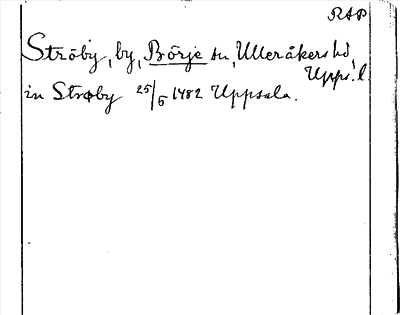 RAP
Ströby, by, Börje sn, Ulleråkers hd,
Upps. l.
in Strøby 25/5 1482 Uppsala.